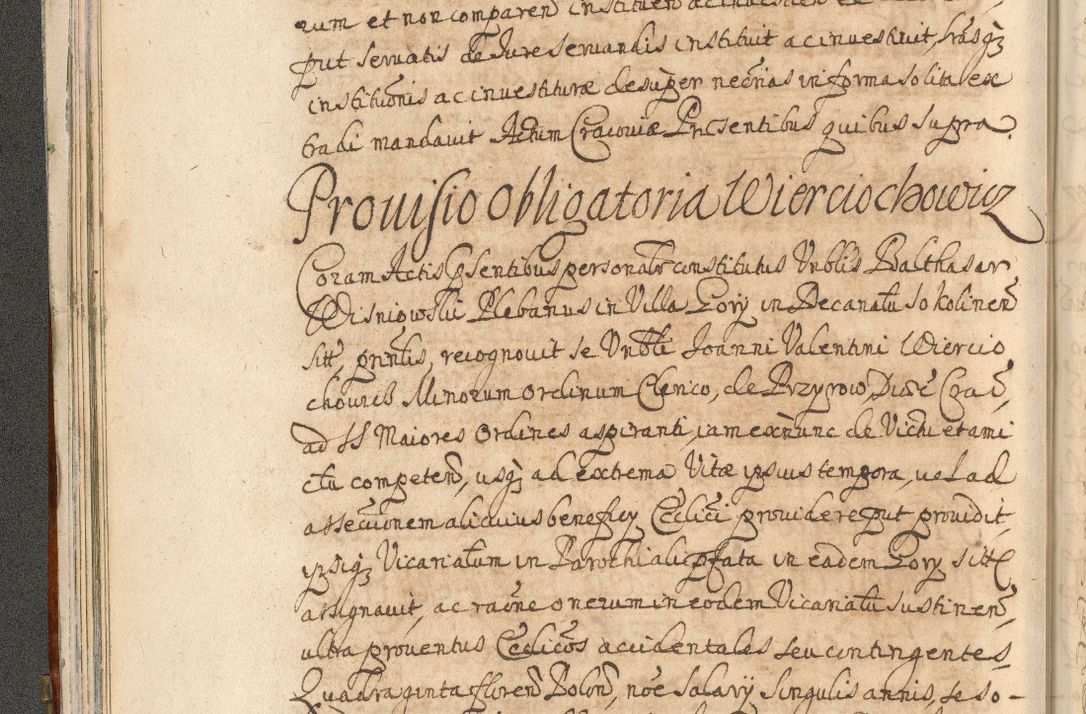 rum et non comparen instituen ac investien
put servatis de Jure servandis instituit ac investivit, lrasq́
institutiõnis ac investituræ desuper necrias in forma solita ex
tradi mandavit Actum Cracoviæ Præsentibus quibus supra.
Provisio obligatoria Wierciochowicz
Coram Actis Psentibus personalr constitutus Vnblis Balthasar
Wisniowski Plebanus in Villa Gory in Decanatu Sokolinen
sitt, prntis, recognovit se Vnbli Joanni Valentini Wiercio
chouic Minorum Ordinum Clerico, de Przyrow, Diæc Crac,
ad SS Maiores Ordines aspiranti, iam exnunc de Victu et ami
ctu competen, usq́ ad extrema Vitæ ipsius tempora, vel ad
assecutionem alicuius beneficy Ecclici providere put providit,
ipsiq́ Vicariatum in Parochiali pfata in eadem Gory sitt
assignavit, ac raõne onerum in eodem Vicariatu sustinen,
ultra proventus Ecclicos accidentales seu contingentes
Quadraginta floren Polon, noe Salary singulis annis, se so-